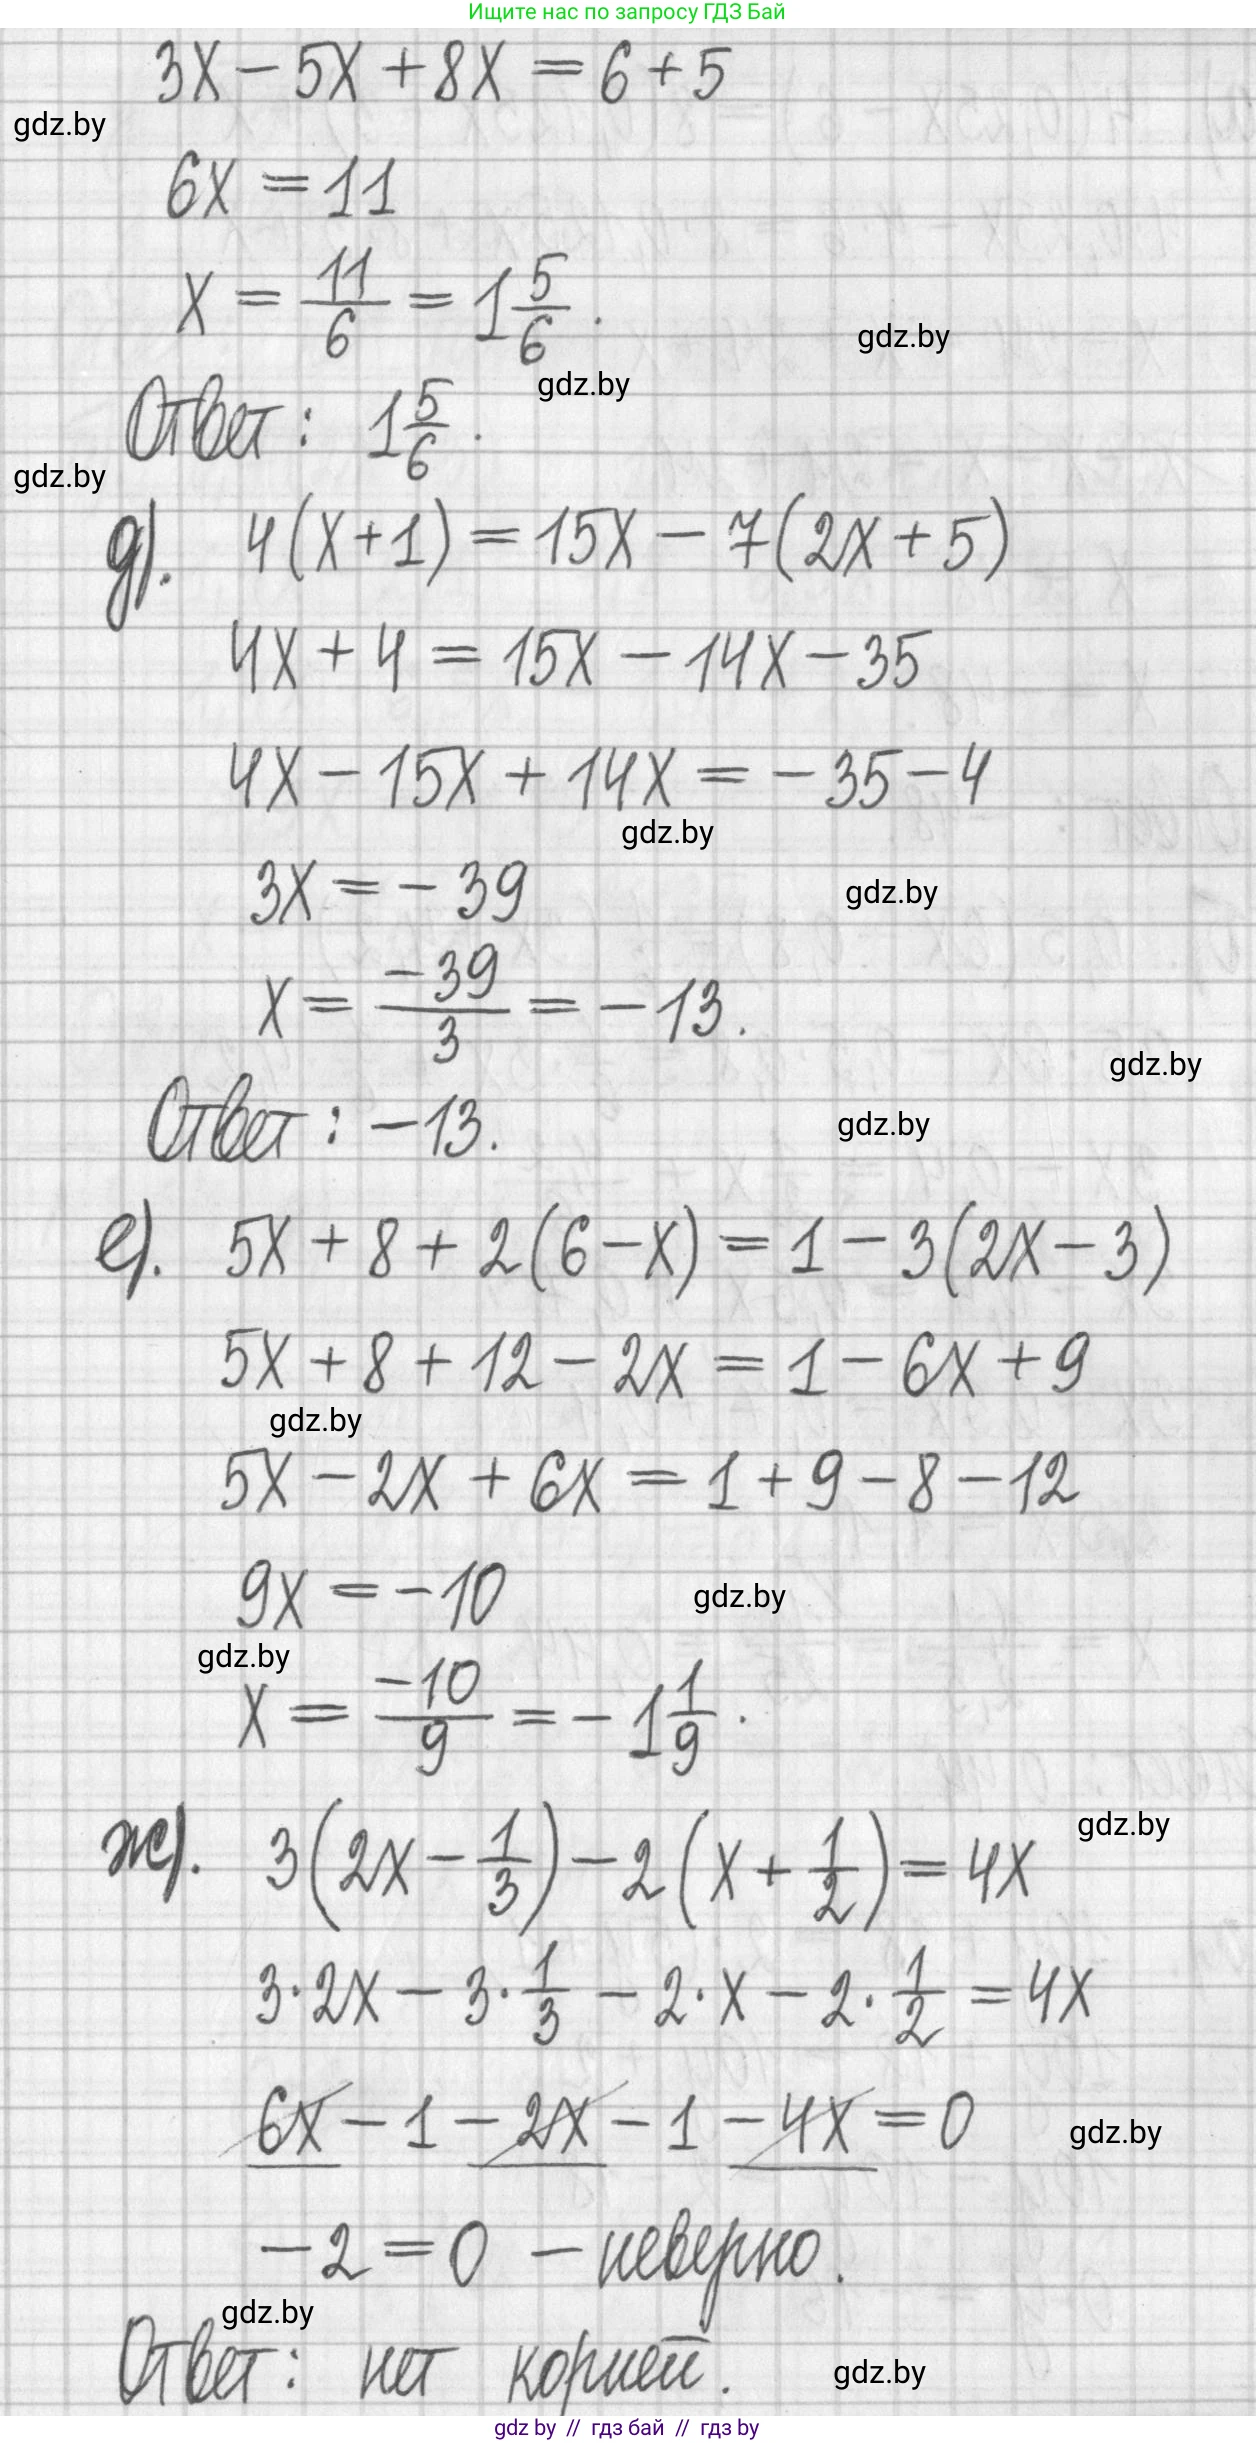 Ищите нас по запросу ГДЗ Бай
3x - 5x + 8x = 6 + 5
gdz.by
6x = 11
x = 11/6 = 1 5/6.
gdz.by
gdz.by
Ответ: 1 5/6.
gdz.by
д). 4(x+1) = 15x - 7(2x+5)
4x + 4 = 15x - 14x - 35
4x - 15x + 14x = -35 - 4
gdz.by
3x = -39
gdz.by
x = -39/3 = -13.
gdz.by
Ответ: -13.
gdz.by
е). 5x + 8 + 2(6-x) = 1 - 3(2x-3)
5x + 8 + 12 - 2x = 1 - 6x + 9
gdz.by
5x - 2x + 6x = 1 + 9 - 8 - 12
9x = -10
gdz.by
gdz.by
x = -10/9 = -1 1/9.
gdz.by
ж). 3(2x - 1/3) - 2(x + 1/2) = 4x
3·2x - 3·1/3 - 2·x - 2·1/2 = 4x
6x - 1 - 2x - 1 - 4x = 0
gdz.by
-2 = 0 - неверно.
gdz.by
Ответ: нет корней.
gdz.by
gdz by // гдз бай // гдз by